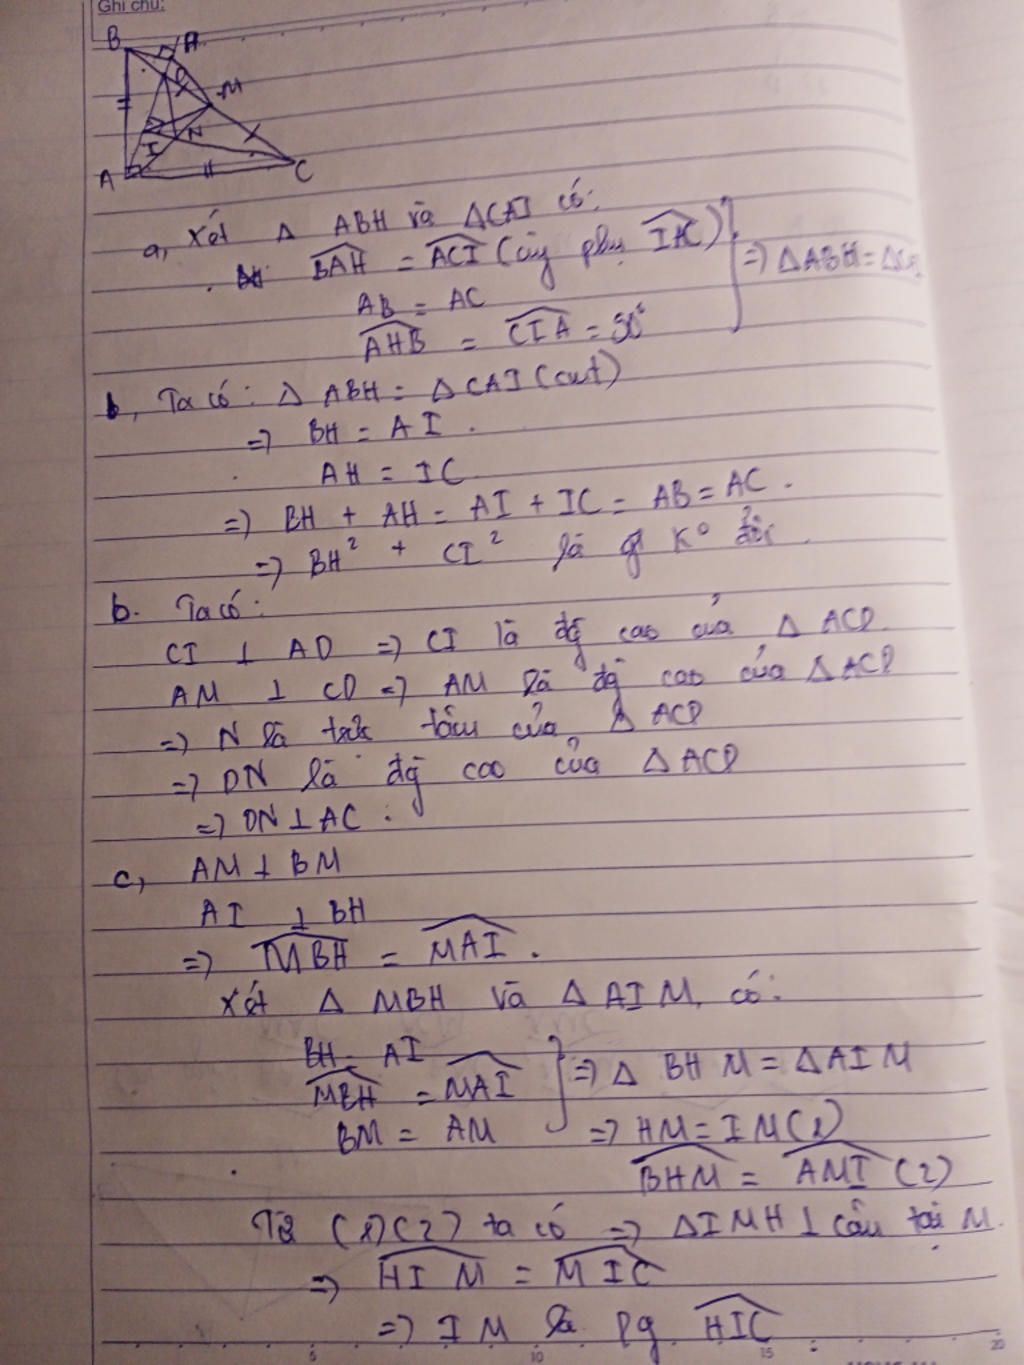 Ghi chú:
B H
D M
I N
A C
a, Xét Δ ABH và ΔCAI có:
BAH = ACI (cùg phụ IAC)
AB = AC
AHB = CIA = 90° => ΔABH = ΔCAI
b, Ta có: Δ ABH = Δ CAI (cmt)
=> BH = AI.
AH = IC
=> BH + AH = AI + IC = AB = AC.
=> BH² + CI² là gt K° đổi.
b. Ta có:
CI ⊥ AD => CI là đg cao của Δ ACD
AM ⊥ CD => AM là đg cao của Δ ACD
=> N là trực tâm của Δ ACD
=> DN là đg cao của Δ ACD
=> DN ⊥ AC.
c, AM ⊥ BM
AI ⊥ BH
=> MBH = MAI.
Xét Δ MBH và Δ AIM có:
BH = AI
MBH = MAI => Δ BHM = ΔAIM
BM = AM => HM = IM (1)
BHM = AMI (2)
Từ (1)(2) ta có => ΔIMH ⊥ cân tại M.
=> HIM = MIC
=> IM là pg HIC
5 10 15 20